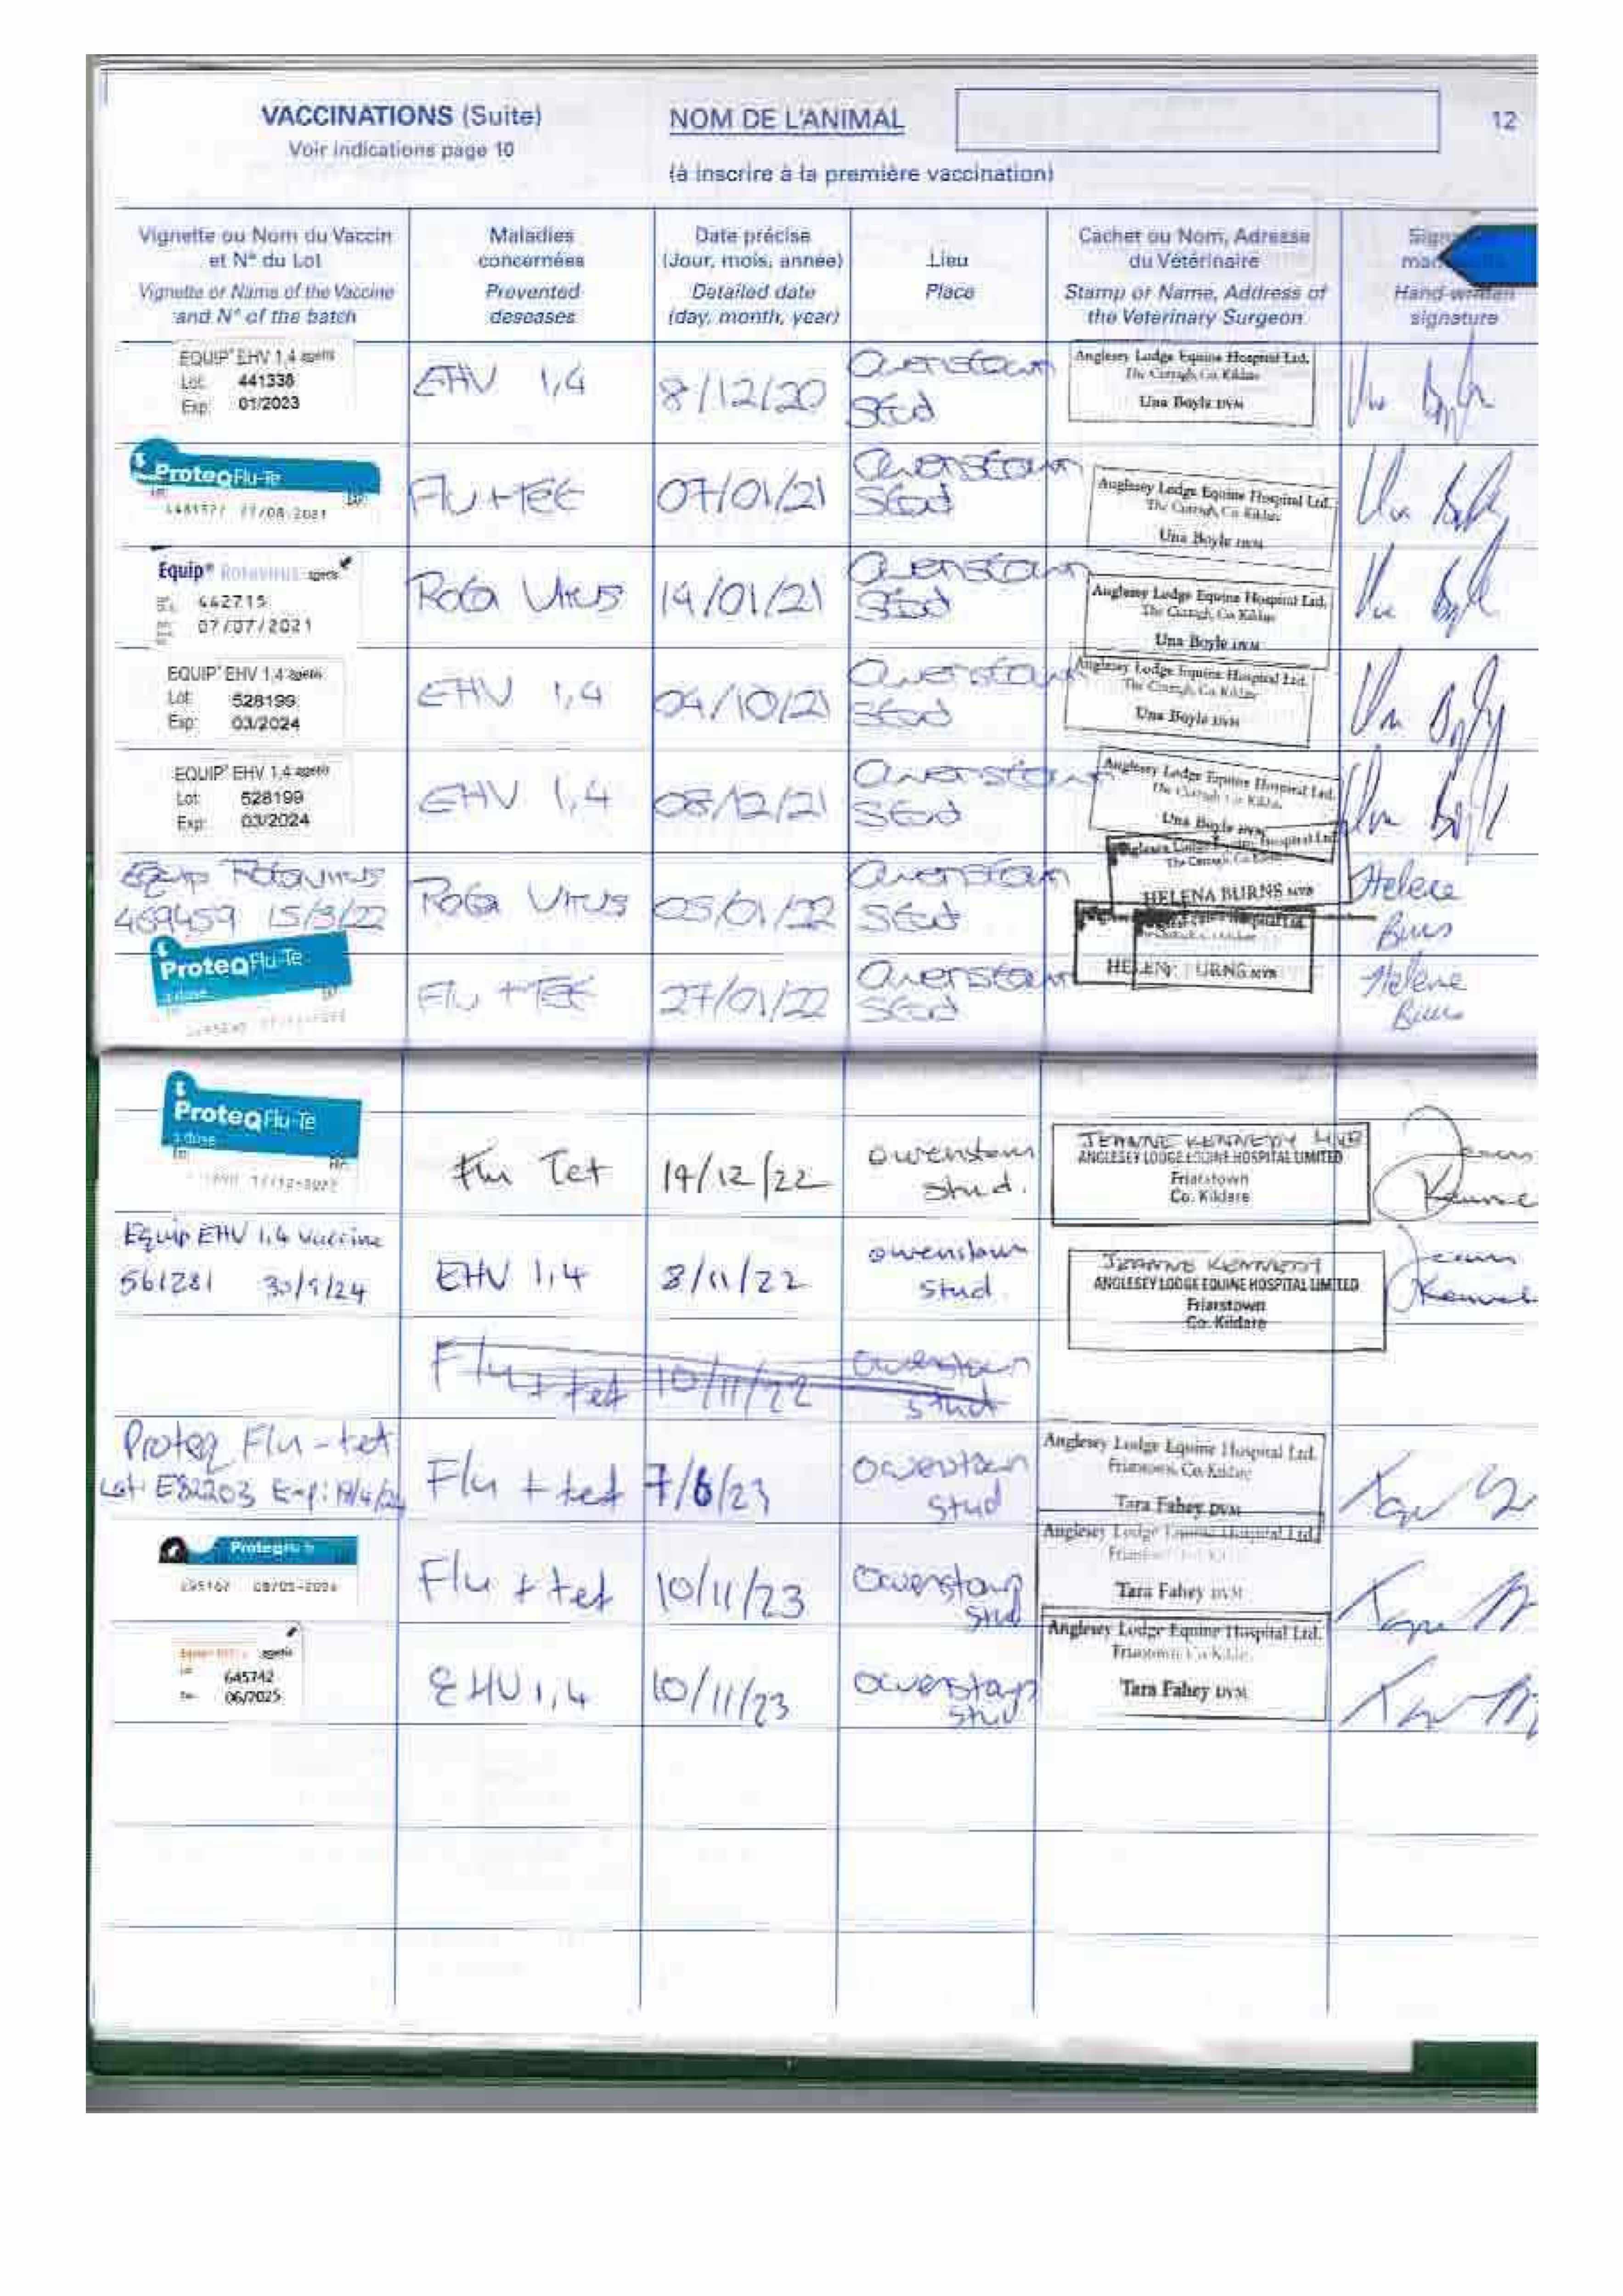 VACCINATIONS (Suite)
Voir indications page 10
NOM DE L'ANIMAL
12
(à inscrire à la première vaccination)
Vignette ou Nom du Vaccin et N° du Lot
Vignette or Name of the Vaccine and N° of the batch
Maladies concernées
Prevented deseases
Date précise (Jour, mois, année)
Detailed date (day, month, year)
Lieu
Place
Cachet ou Nom, Adresse du Vétérinaire
Stamp or Name, Address of the Veterinary Surgeon
Hand-written signature
EQUIP EHV 1,4
Lot: 441338
Exp: 01/2023
EHV 1,4
8/12/20
Owenstown
Stud
Anglesey Lodge Equine Hospital Ltd.
The Curragh, Co. Kildare
Una Boyle DVM
ProteqFlu-Te
Flu+Tet
07/01/21
Owenstown
Stud
Anglesey Lodge Equine Hospital Ltd.
The Curragh, Co. Kildare
Una Boyle DVM
Equip® Rotavirus
442715
07/07/2021
Rota Virus
14/01/21
Owenstown
Stud
Anglesey Lodge Equine Hospital Ltd.
The Curragh, Co. Kildare
Una Boyle DVM
EQUIP EHV 1,4
Lot: 528199
Exp: 03/2024
EHV 1,4
04/10/21
Owenstown
Stud
Anglesey Lodge Equine Hospital Ltd.
The Curragh, Co. Kildare
Una Boyle DVM
EQUIP EHV 1,4
Lot: 528199
Exp: 03/2024
EHV 1,4
08/12/21
Owenstown
Stud
Anglesey Lodge Equine Hospital Ltd.
The Curragh, Co. Kildare
Una Boyle DVM
Equip Rotavirus
469459 15/3/22
Rota Virus
05/01/22
Owenstown
Stud
HELENA BURNS MVB
ProteqFlu-Te
1 dose
Flu + Tet
27/01/22
Owenstown
Stud
ProteqFlu-Te
1 dose
Flu Tet
14/12/22
Owenstown
Stud.
JEANNE KENNEDY MVB
ANGLESEY LODGE EQUINE HOSPITAL LIMITED
Friarstown
Co. Kildare
Equip EHV 1,4 Vaccine
561281 30/9/24
EHV 1,4
8/11/22
Owenstown
Stud
JEANNE KENNEDY
ANGLESEY LODGE EQUINE HOSPITAL LIMITED
Friarstown
Co. Kildare
Flu + tet
10/11/22
Owenstown
Stud
Proteq Flu-tet
Lot: E82203
Flu + tet
7/6/23
Owenstown
Stud
Anglesey Lodge Equine Hospital Ltd.
Friarstown, Co. Kildare
Tara Fahey DVM
Flu + tet
10/11/23
Owenstown
Stud
Anglesey Lodge Equine Hospital Ltd.
Tara Fahey DVM
645742
06/2025
EHV 1,4
10/11/23
Owenstown
Stud
Anglesey Lodge Equine Hospital Ltd.
Friarstown, Co. Kildare
Tara Fahey DVM